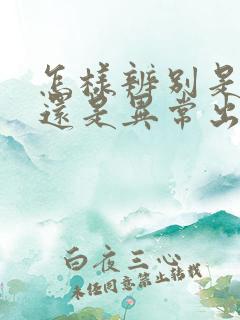 怎樣辨別是
還是異常出
白夜三心
未經同意禁止轉載